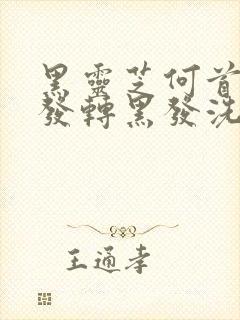 黑靈芝何首
發轉黑發洗
王通孝